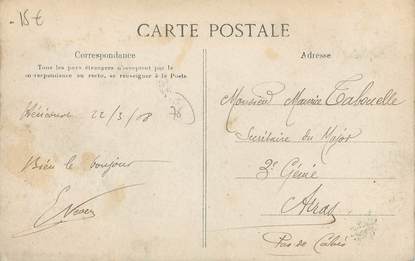 -15€
CARTE POSTALE
Correspondance
Tous les pays étrangers n'acceptent pas la
correspondance au recto, se renseigner à la Poste
Héricourt 22/3/08
Bien le bonjour
78
Adresse
Monsieur Maurice Tabouelle
Secrétaire du Major
3e Génie
Arras
Pas de Calais